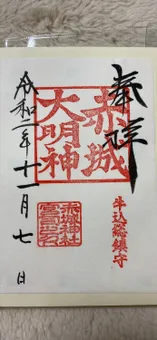 奉拝
赤城
大明神
牛込総鎮守
赤城神社
令和二年十一月七日